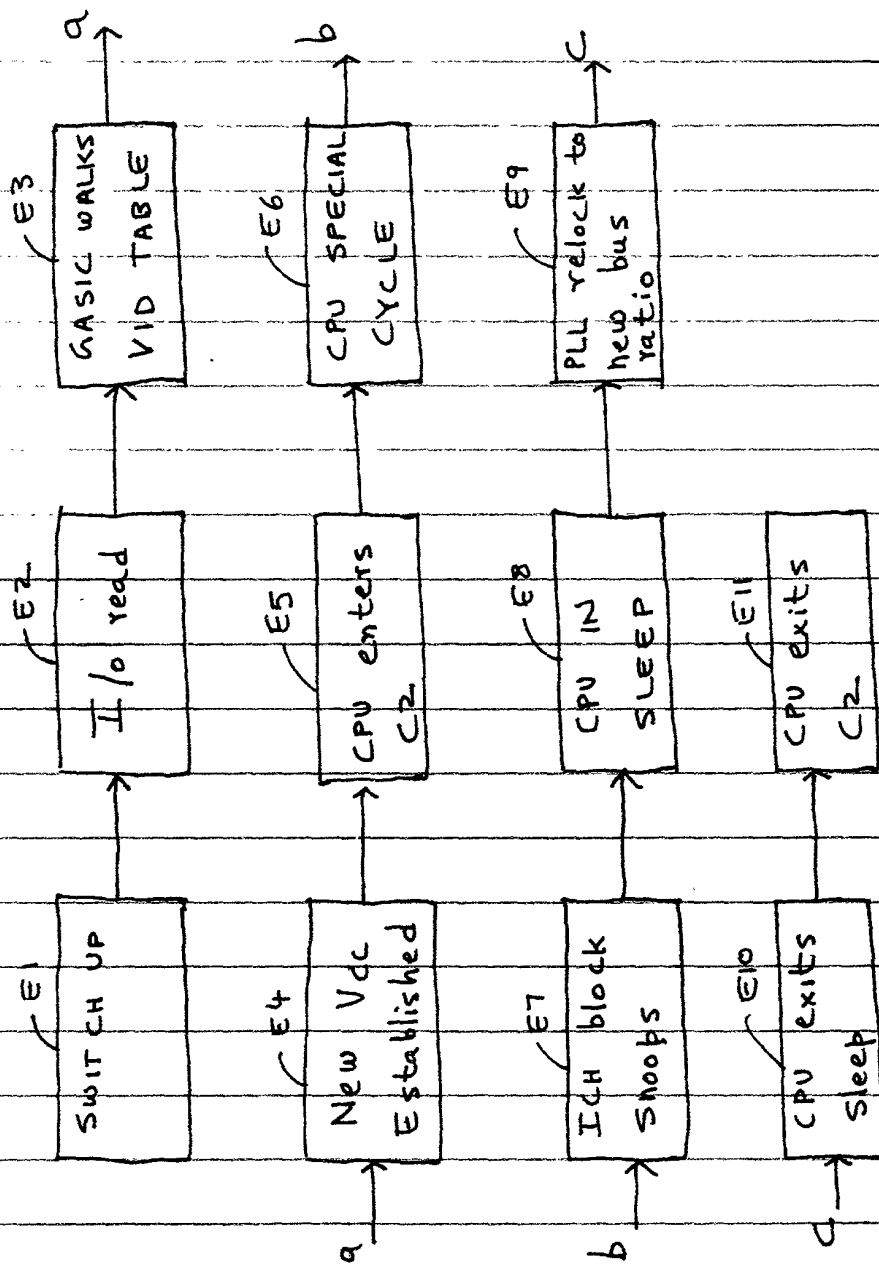 E1
SWITCH UP
E2
I/O read
E3
GASIC WALKS
VID TABLE
a
a
E4
New Vcc
Established
E5
CPU enters
C2
E6
CPU SPECIAL
CYCLE
b
b
E7
ICH block
Snoops
E8
CPU IN
SLEEP
E9
PLL relock to
new bus
ratio
c
c
E10
CPU exits
Sleep
E11
CPU exits
C2